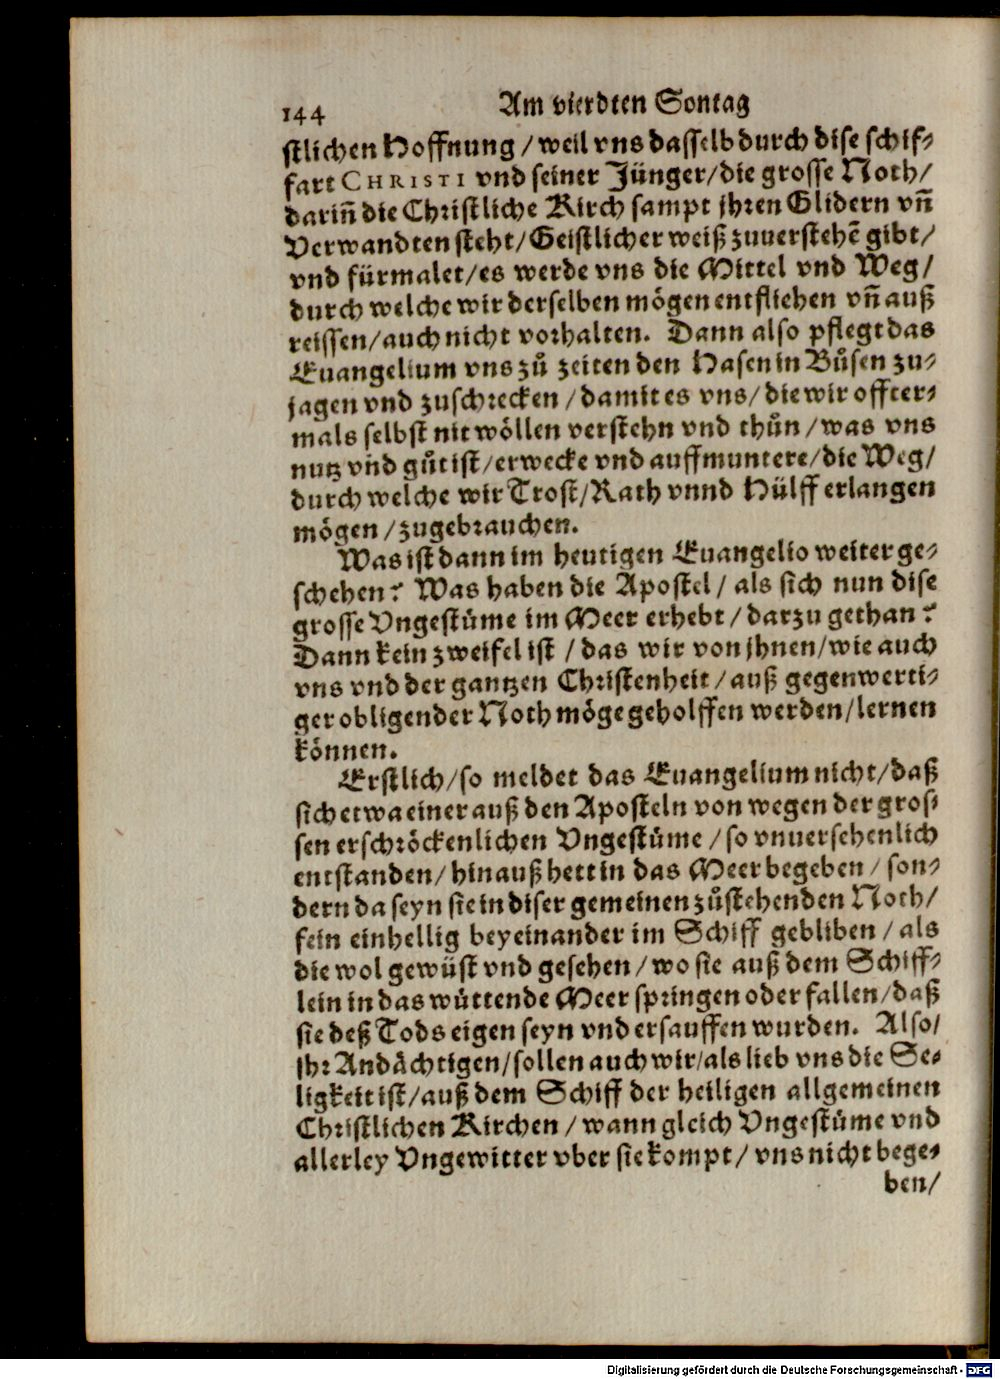 144 Am vierdten Sontag
stlichen Hoffnung / weil vns dasselb durch dise schif-
fart CHRISTI vnd seiner Jünger / die grosse Noth /
dariñ die Christliche Kirch sampt jhren Glidern vñ
Verwandten steht / Geistlicher weiß zuuerstehẽ gibt /
vnd fürmalet / es werde vns die Mittel vnd Weg /
durch welche wir derselben mögen entfliehen vñ auß
reissen / auch nicht vorhalten. Dann also pflegt das
Euangelium vns zů zeiten den Hasen in Bůsen zu-
jagen vnd zuschrecken / damit es vns / die wir offter-
mals selbst nit wöllen verstehn vnd thůn / was vns
nutz vnd gůt ist / erwecke vnd auffmuntere / die Weg /
durch welche wir Trost / Rath vnnd Hülff erlangen
mögen / zugebrauchen.
Was ist dann im heutigen Euangelio weiter ge-
schehen? Was haben die Apostel / als sich nun dise
grosse Vngestüme im Meer erhebt / darzu gethan?
Dann kein zweifel ist / das wir von jhnen / wie auch
vns vnd der gantzen Christenheit / auß gegenwerti-
ger obligender Noth möge geholffen werden / lernen
können.
Erstlich / so meldet das Euangelium nicht / daß
sich etwa einer auß den Aposteln von wegen der gros-
sen erschröckenlichen Vngestüme / so vnuersehenlich
entstanden / hinauß hett in das Meer begeben / son-
dern da seyn sie in diser gemeinen zůstehenden Noth /
fein einhellig beyeinander im Schiff gebliben / als
die wol gewüst vnd gesehen / wo sie auß dem Schiff-
lein in das wüttende Meer springen oder fallen / daß
sie deß Tods eigen seyn vnd ersauffen wurden. Also /
jhr Andächtigen / sollen auch wir / als lieb vns die Se-
ligkeit ist / auß dem Schiff der heiligen allgemeinen
Christlichen Kirchen / wann gleich Vngestüme vnd
allerley Vngewitter vber sie kompt / vns nicht bege-
ben /
Digitalisierung gefördert durch die Deutsche Forschungsgemeinschaft - DFG